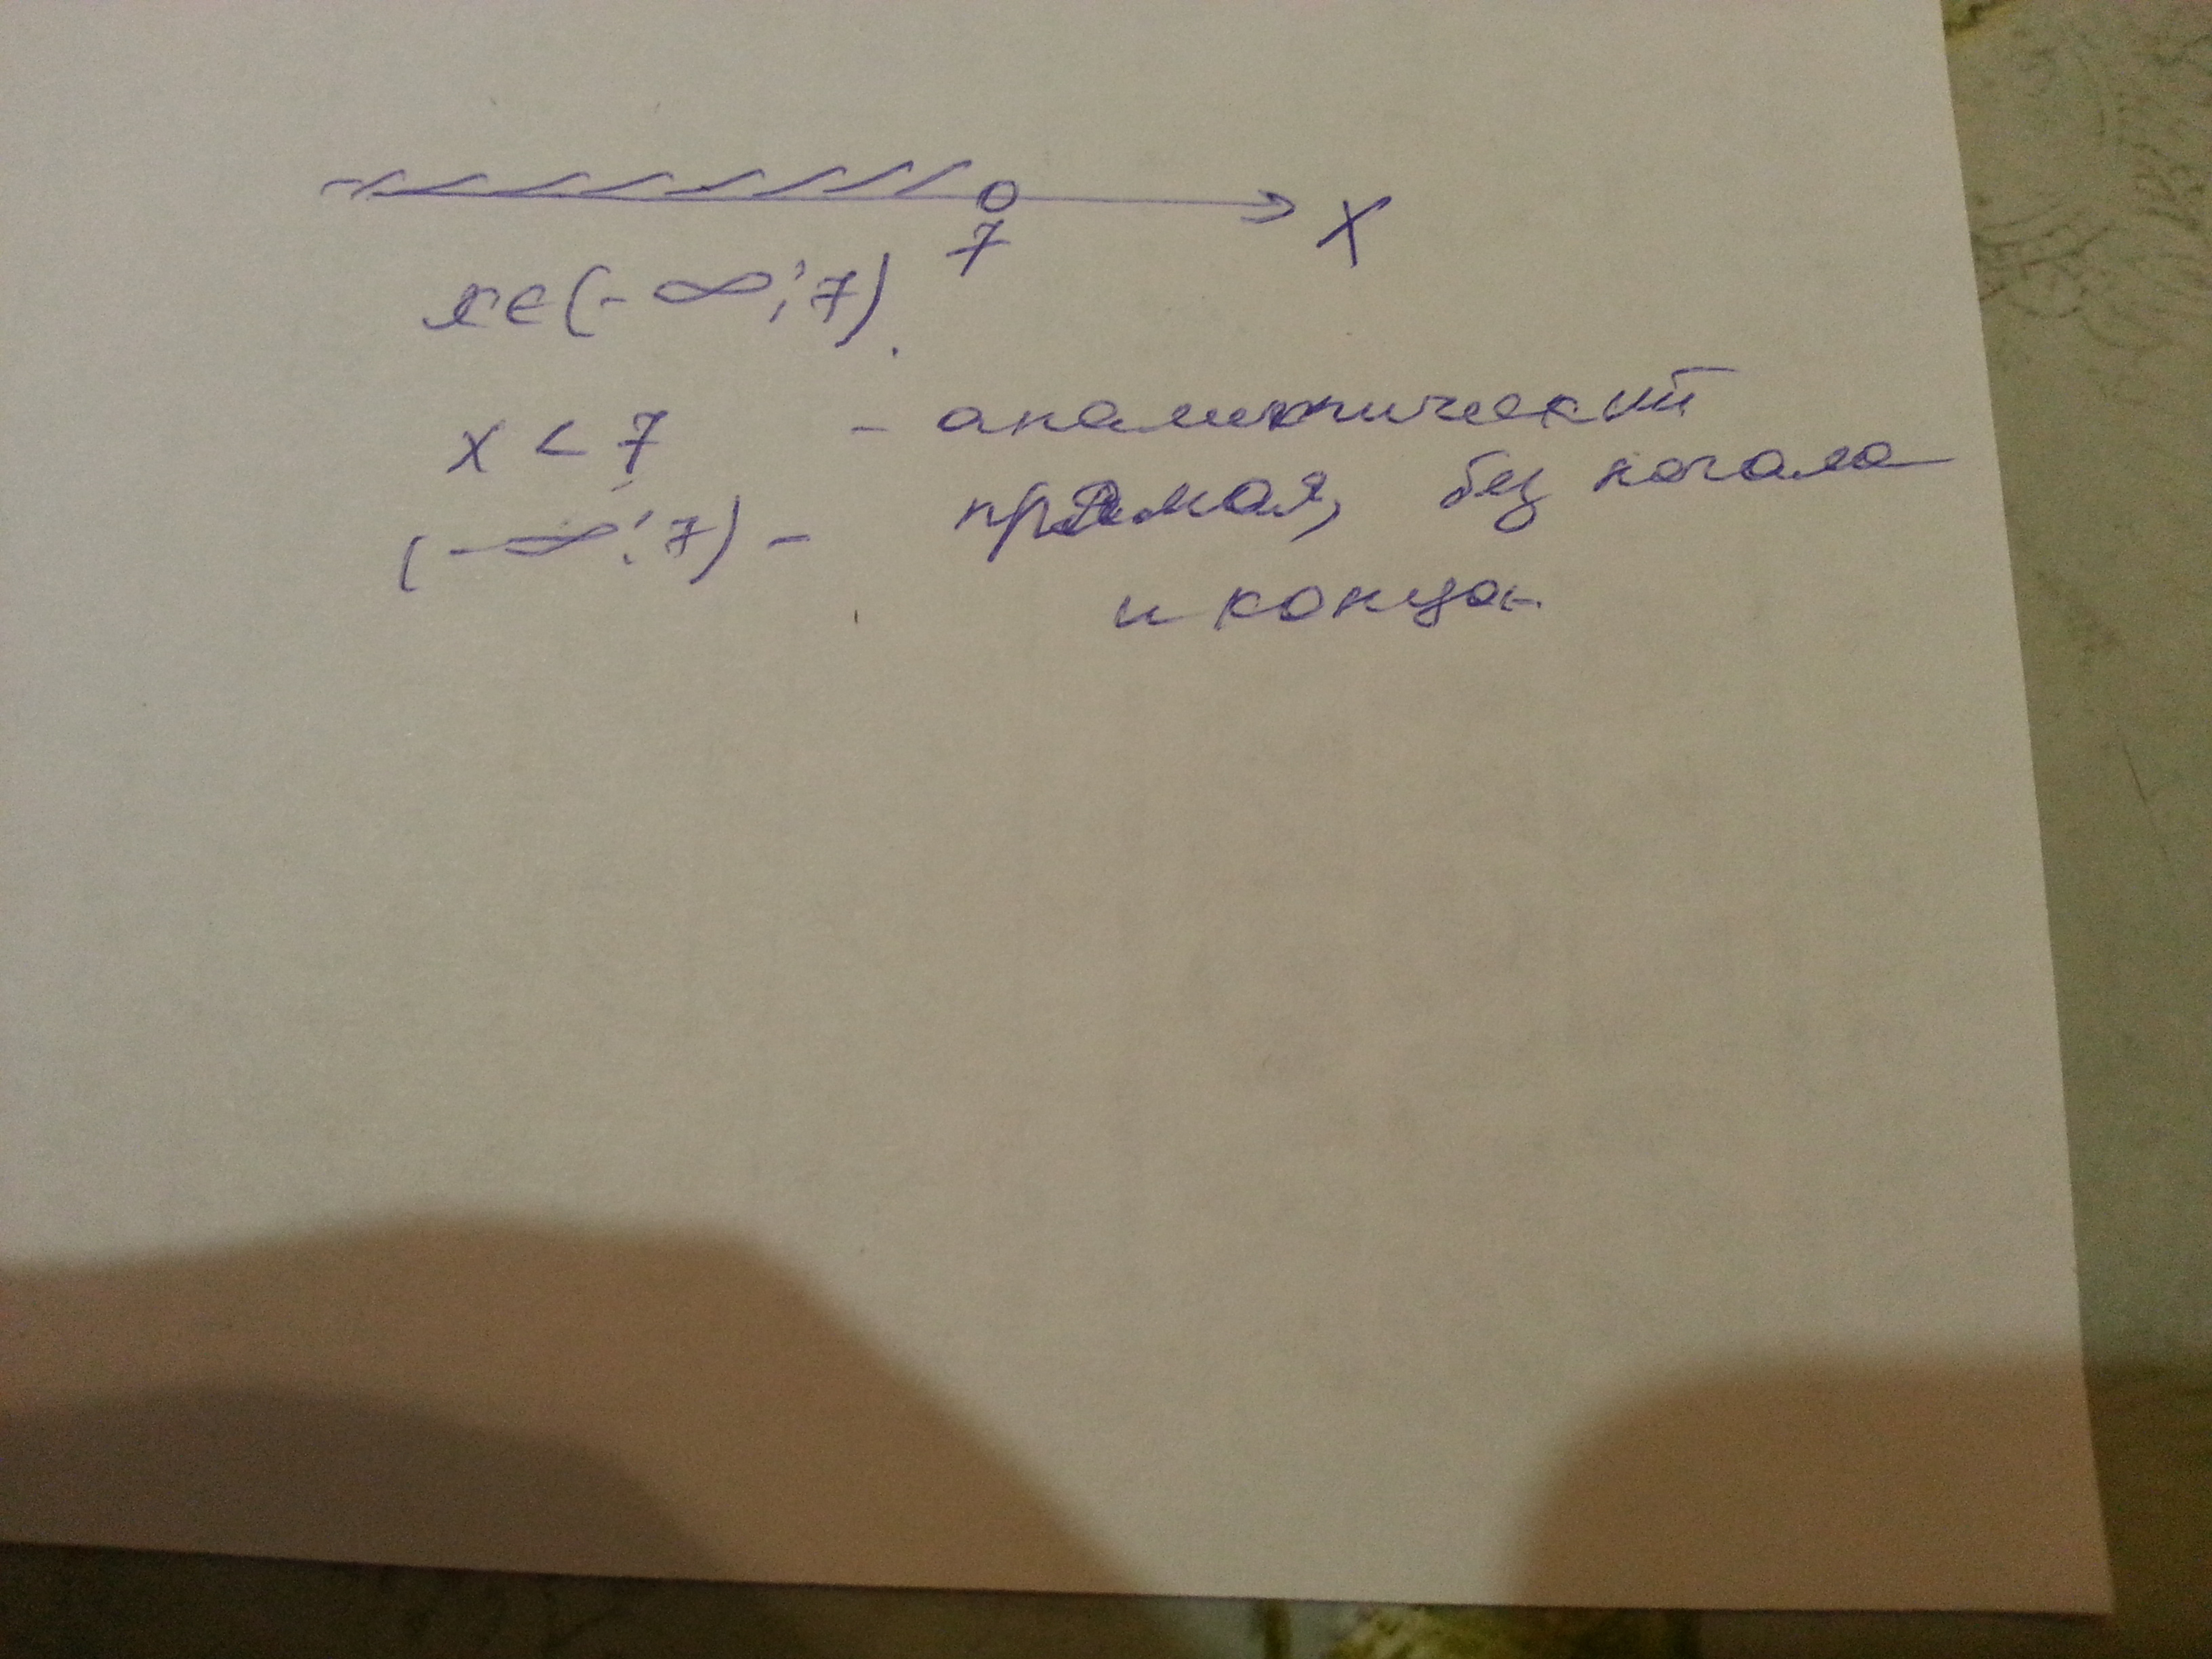 7 X
x∈(-∞; 7).
x < 7 - аналитический
(-∞; 7) - прямая, без начала
и конца.